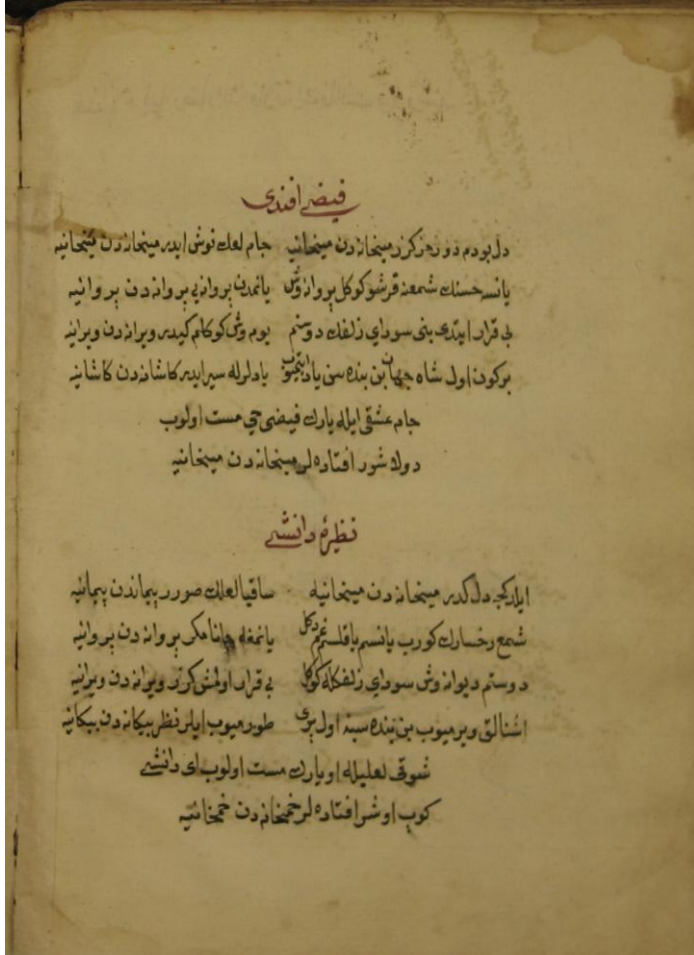 فیضی افندی
دل بودم دورندر کزر میخانه دن میخانیه جام لعلك نوش ایدر میخانه دن میخانیه
یانسه حسنك شمعنه قرشو کوکل پروانه وش یانمدن پروانه یی پروانه دن پروانیه
بی قرار ایتدی بنی سودای زلفك دوستم بوم وش کوکلم کیدر ویرانه دن ویرانیه
برکون اول شاه جهان بن بنده سن یاد ایتمیوب یادلرله سیر ایدر کاشانه دن کاشانیه
جام عشقی ایله یارك فیضی جی مست اولوب
دولاشور افتاده لر میخانه دن میخانیه
نظیرهٔ دانشی
ایلر کجه دل کدر میخانه دن میخانیه ساقیا لعلك صورر پیمانه دن پیمانیه
شمع رخسارك کورب یانسم یاقلسم غم دکل یانمغله جانا مکر پروانه دن پروانیه
دوستم دیوانه وش سودای زلفکله کوکل بی قرار اولمش کزر ویرانه دن ویرانیه
اشنالق ویرمیوب بن بنده سنه اول پری طورمیوب ایلر نظر بیکانه دن بیکانیه
شوقی لعلیله او یارك مست اولوب ای دانشی
کوب اوشر افتاده لر خمخانه دن خمخانیه